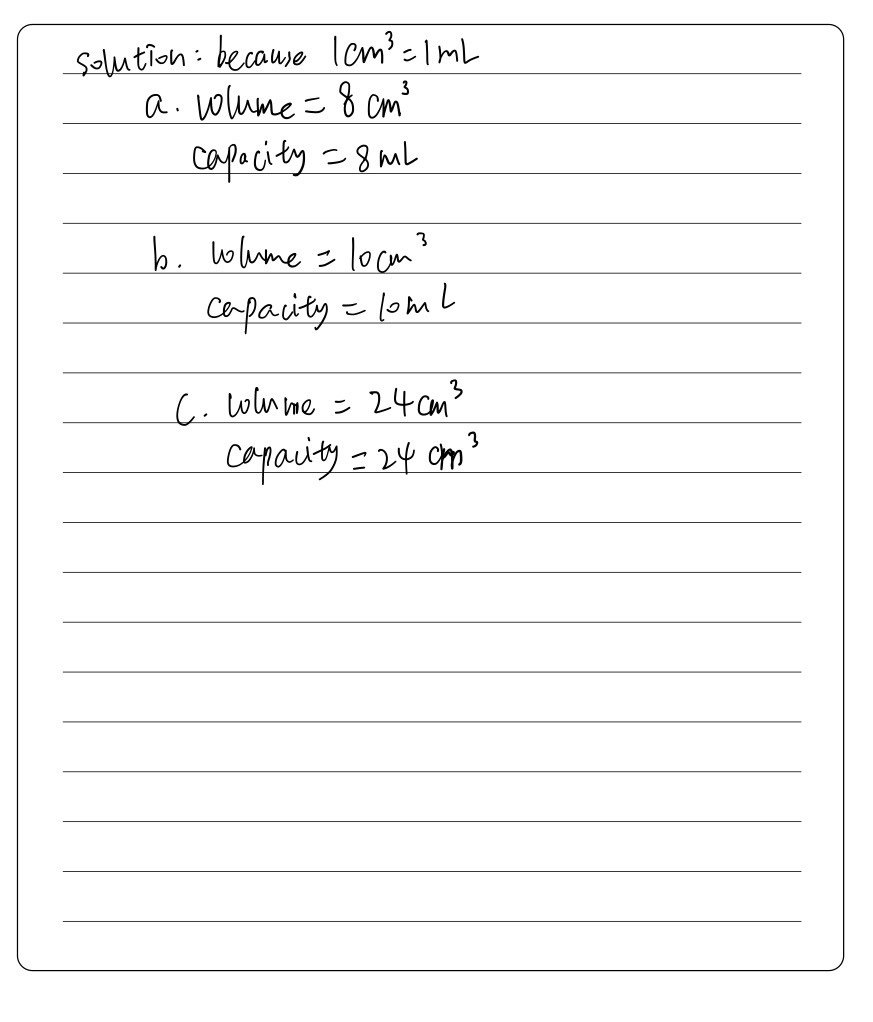 solution: because 1cm³=1mL
a. volume = 8 cm³
capacity = 8mL
b. volume = 10cm³
capacity = 10mL
C. volume = 24cm³
capacity = 24 cm³